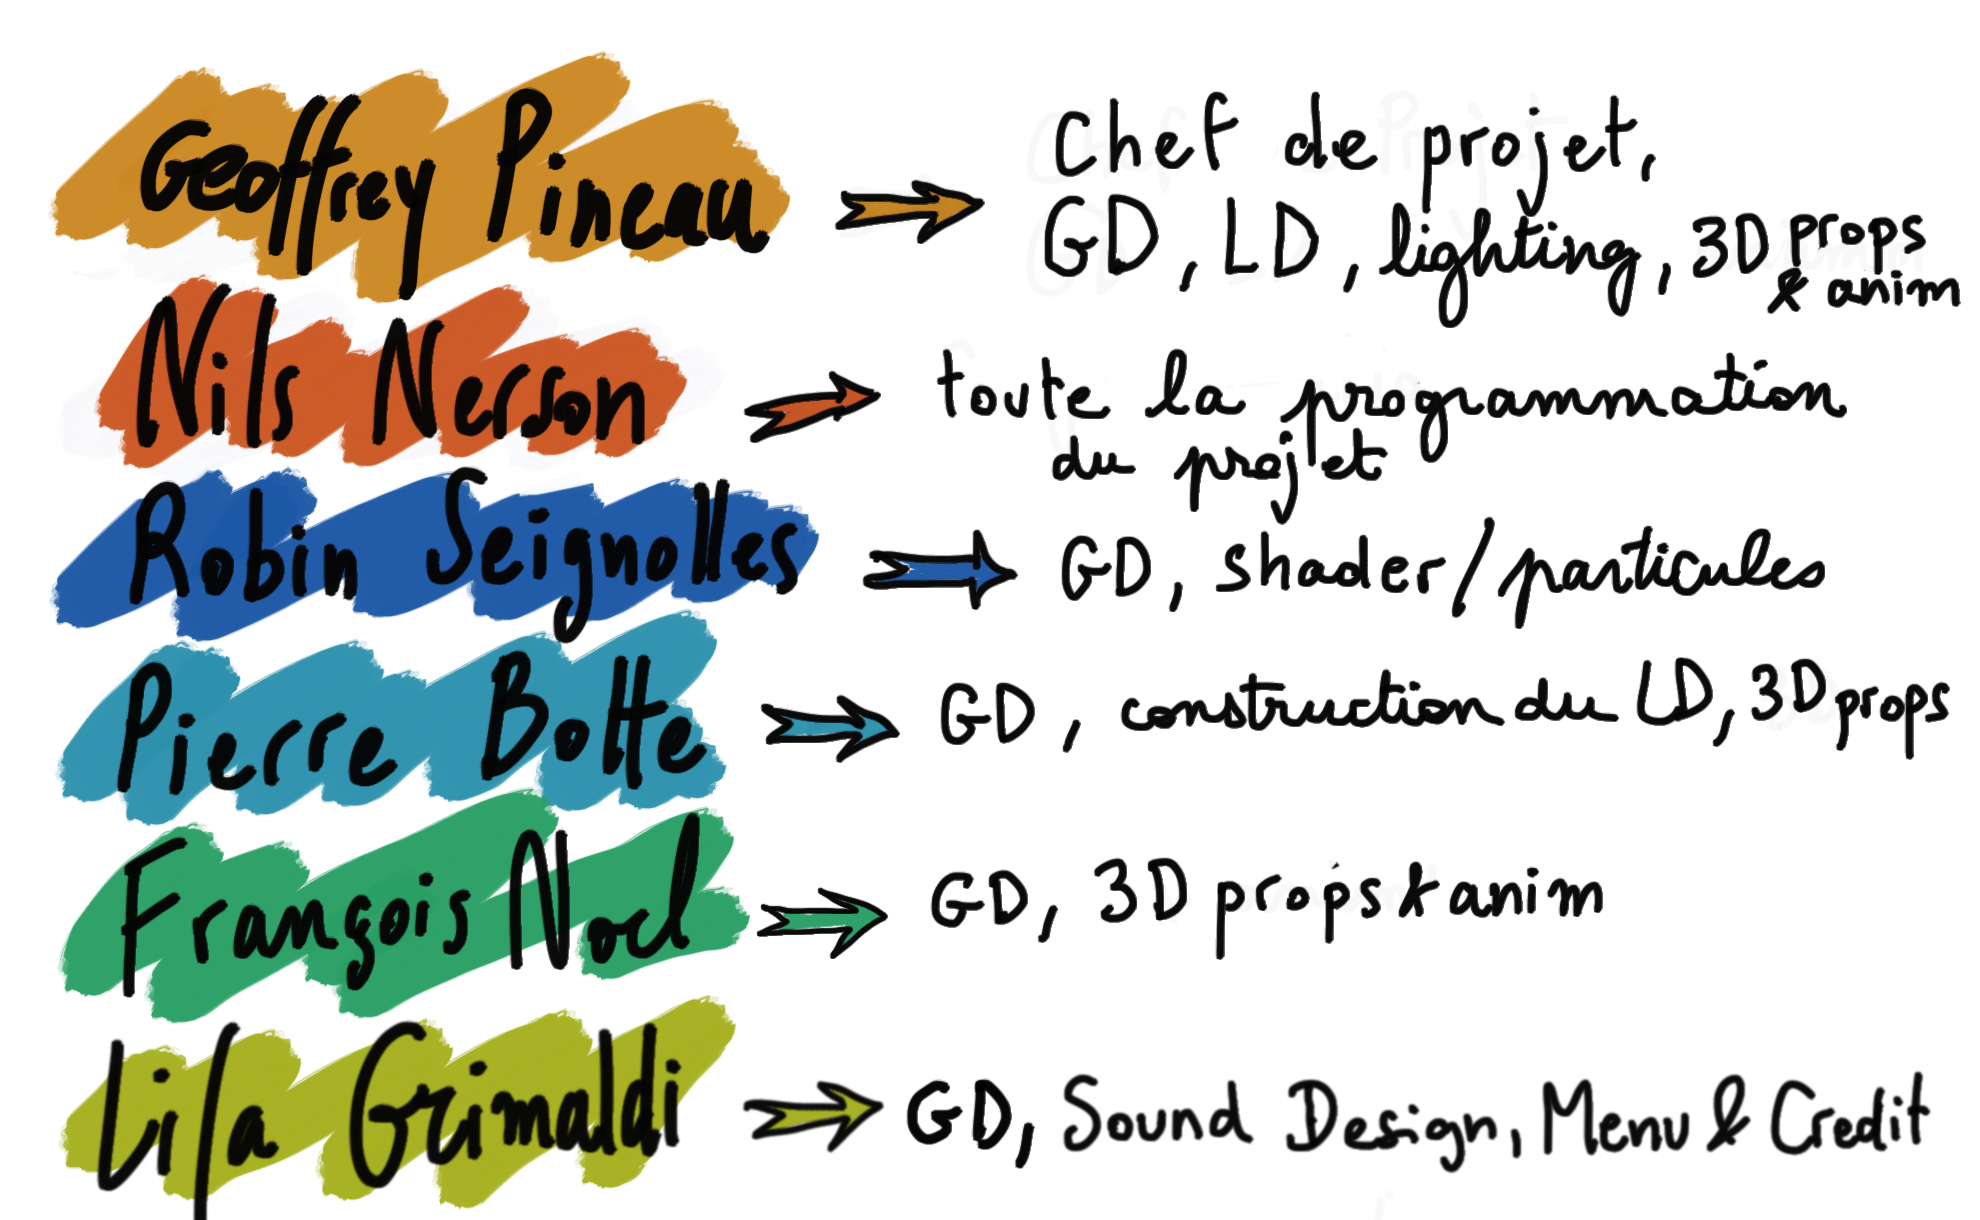 Geoffrey Pineau
Chef de projet,
GD, LD, lighting, 3D props
& anim
Nils Nerson
toute la programmation
du projet
Robin Seignolles
GD, shader/particules
Pierre Botte
GD, construction du LD, 3D props
François Nocl
GD, 3D props & anim
Lila Grimaldi
GD, Sound Design, Menu & Credit